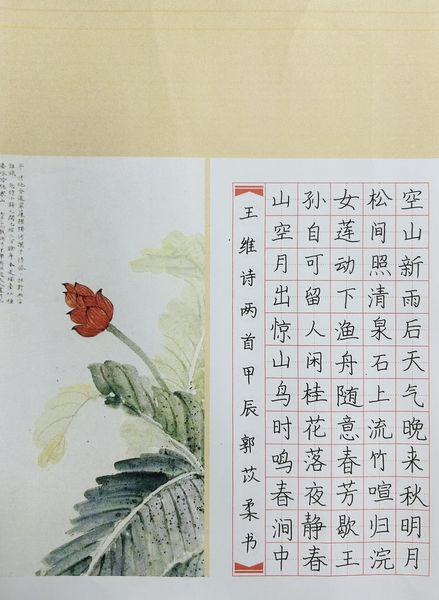 空山新雨后天气晚来秋明月
松间照清泉石上流竹喧归浣
女莲动下渔舟随意春芳歇王
孙自可留人闲桂花落夜静春
山空月出惊山鸟时鸣春涧中
王维诗两首甲辰郭苡柔书